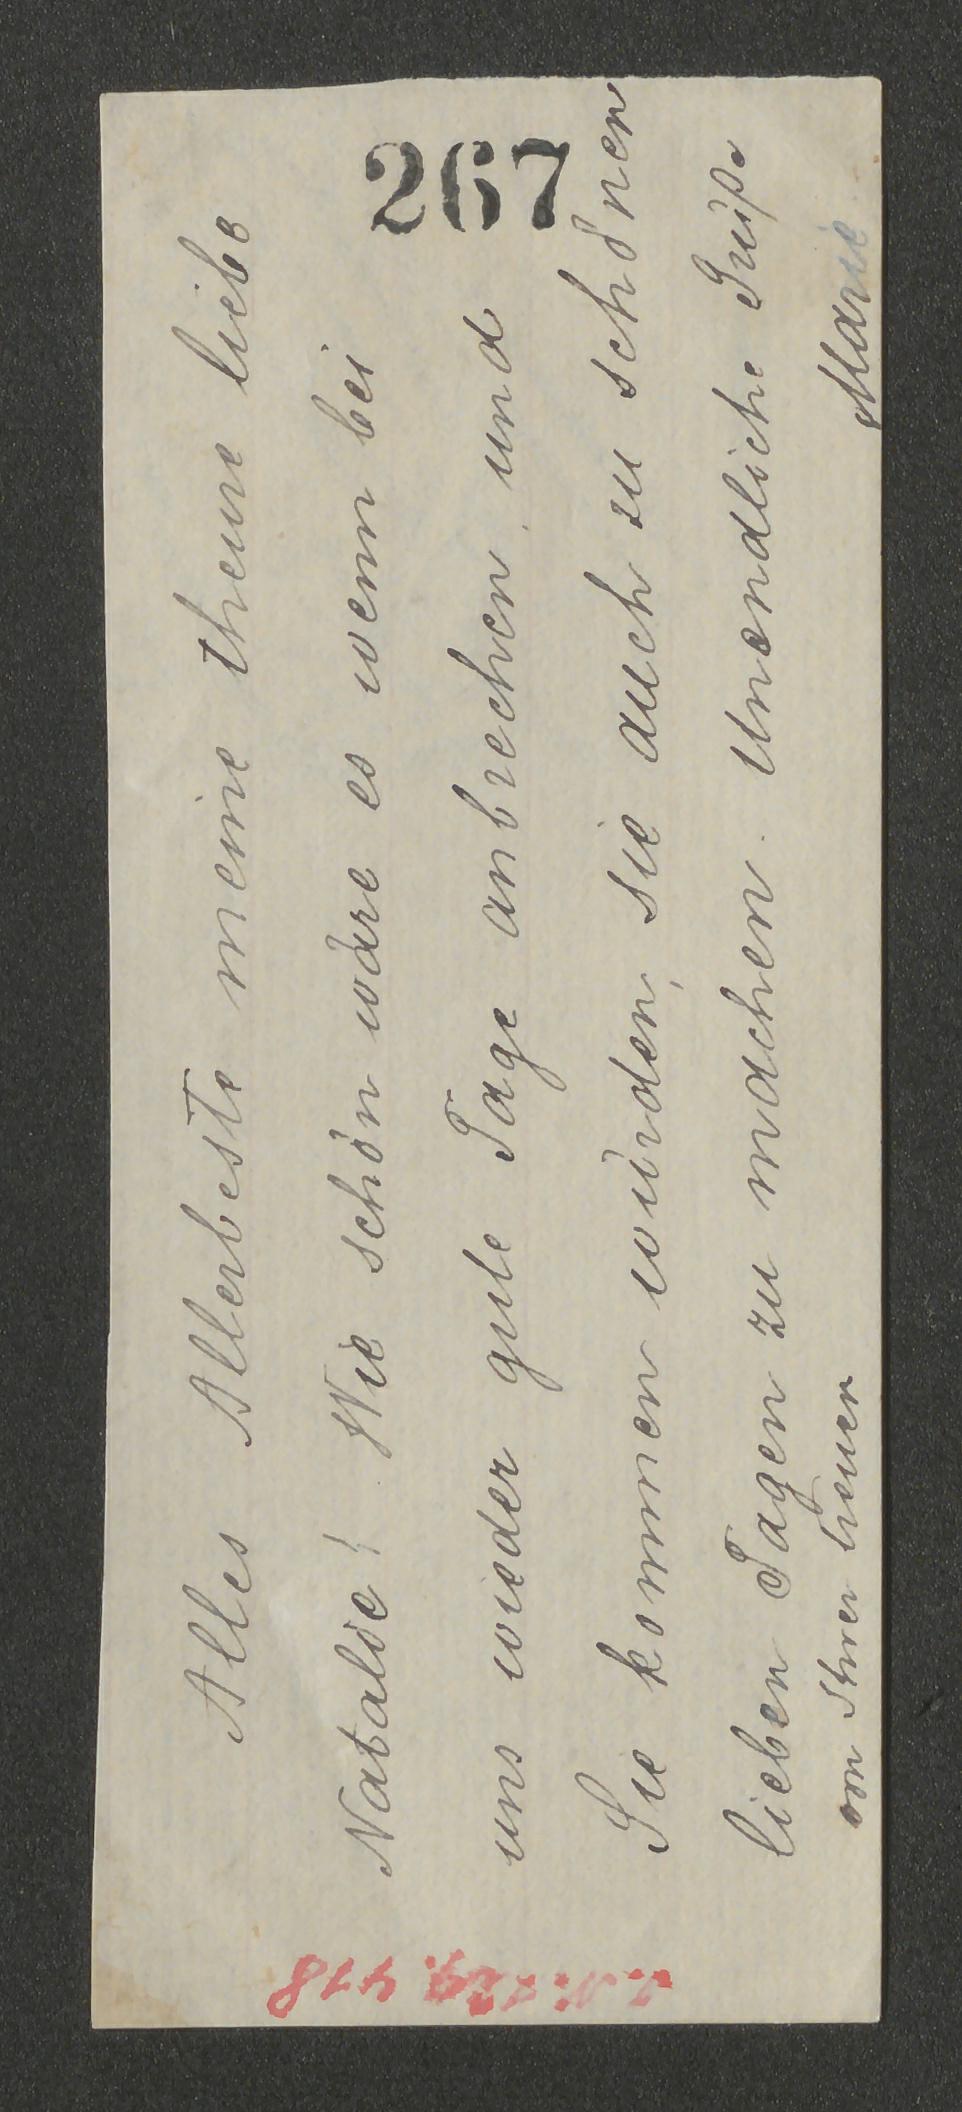 267
Alles Allerbeste meine theure liebe
Natalie! Wie schön wäre es wenn bei
uns wieder gute Tage anbrechen, und
Sie kommen würden, sie auch zu schönen
lieben Tagen zu machen. Unendliche Grüße
von Ihrer treuen Marie